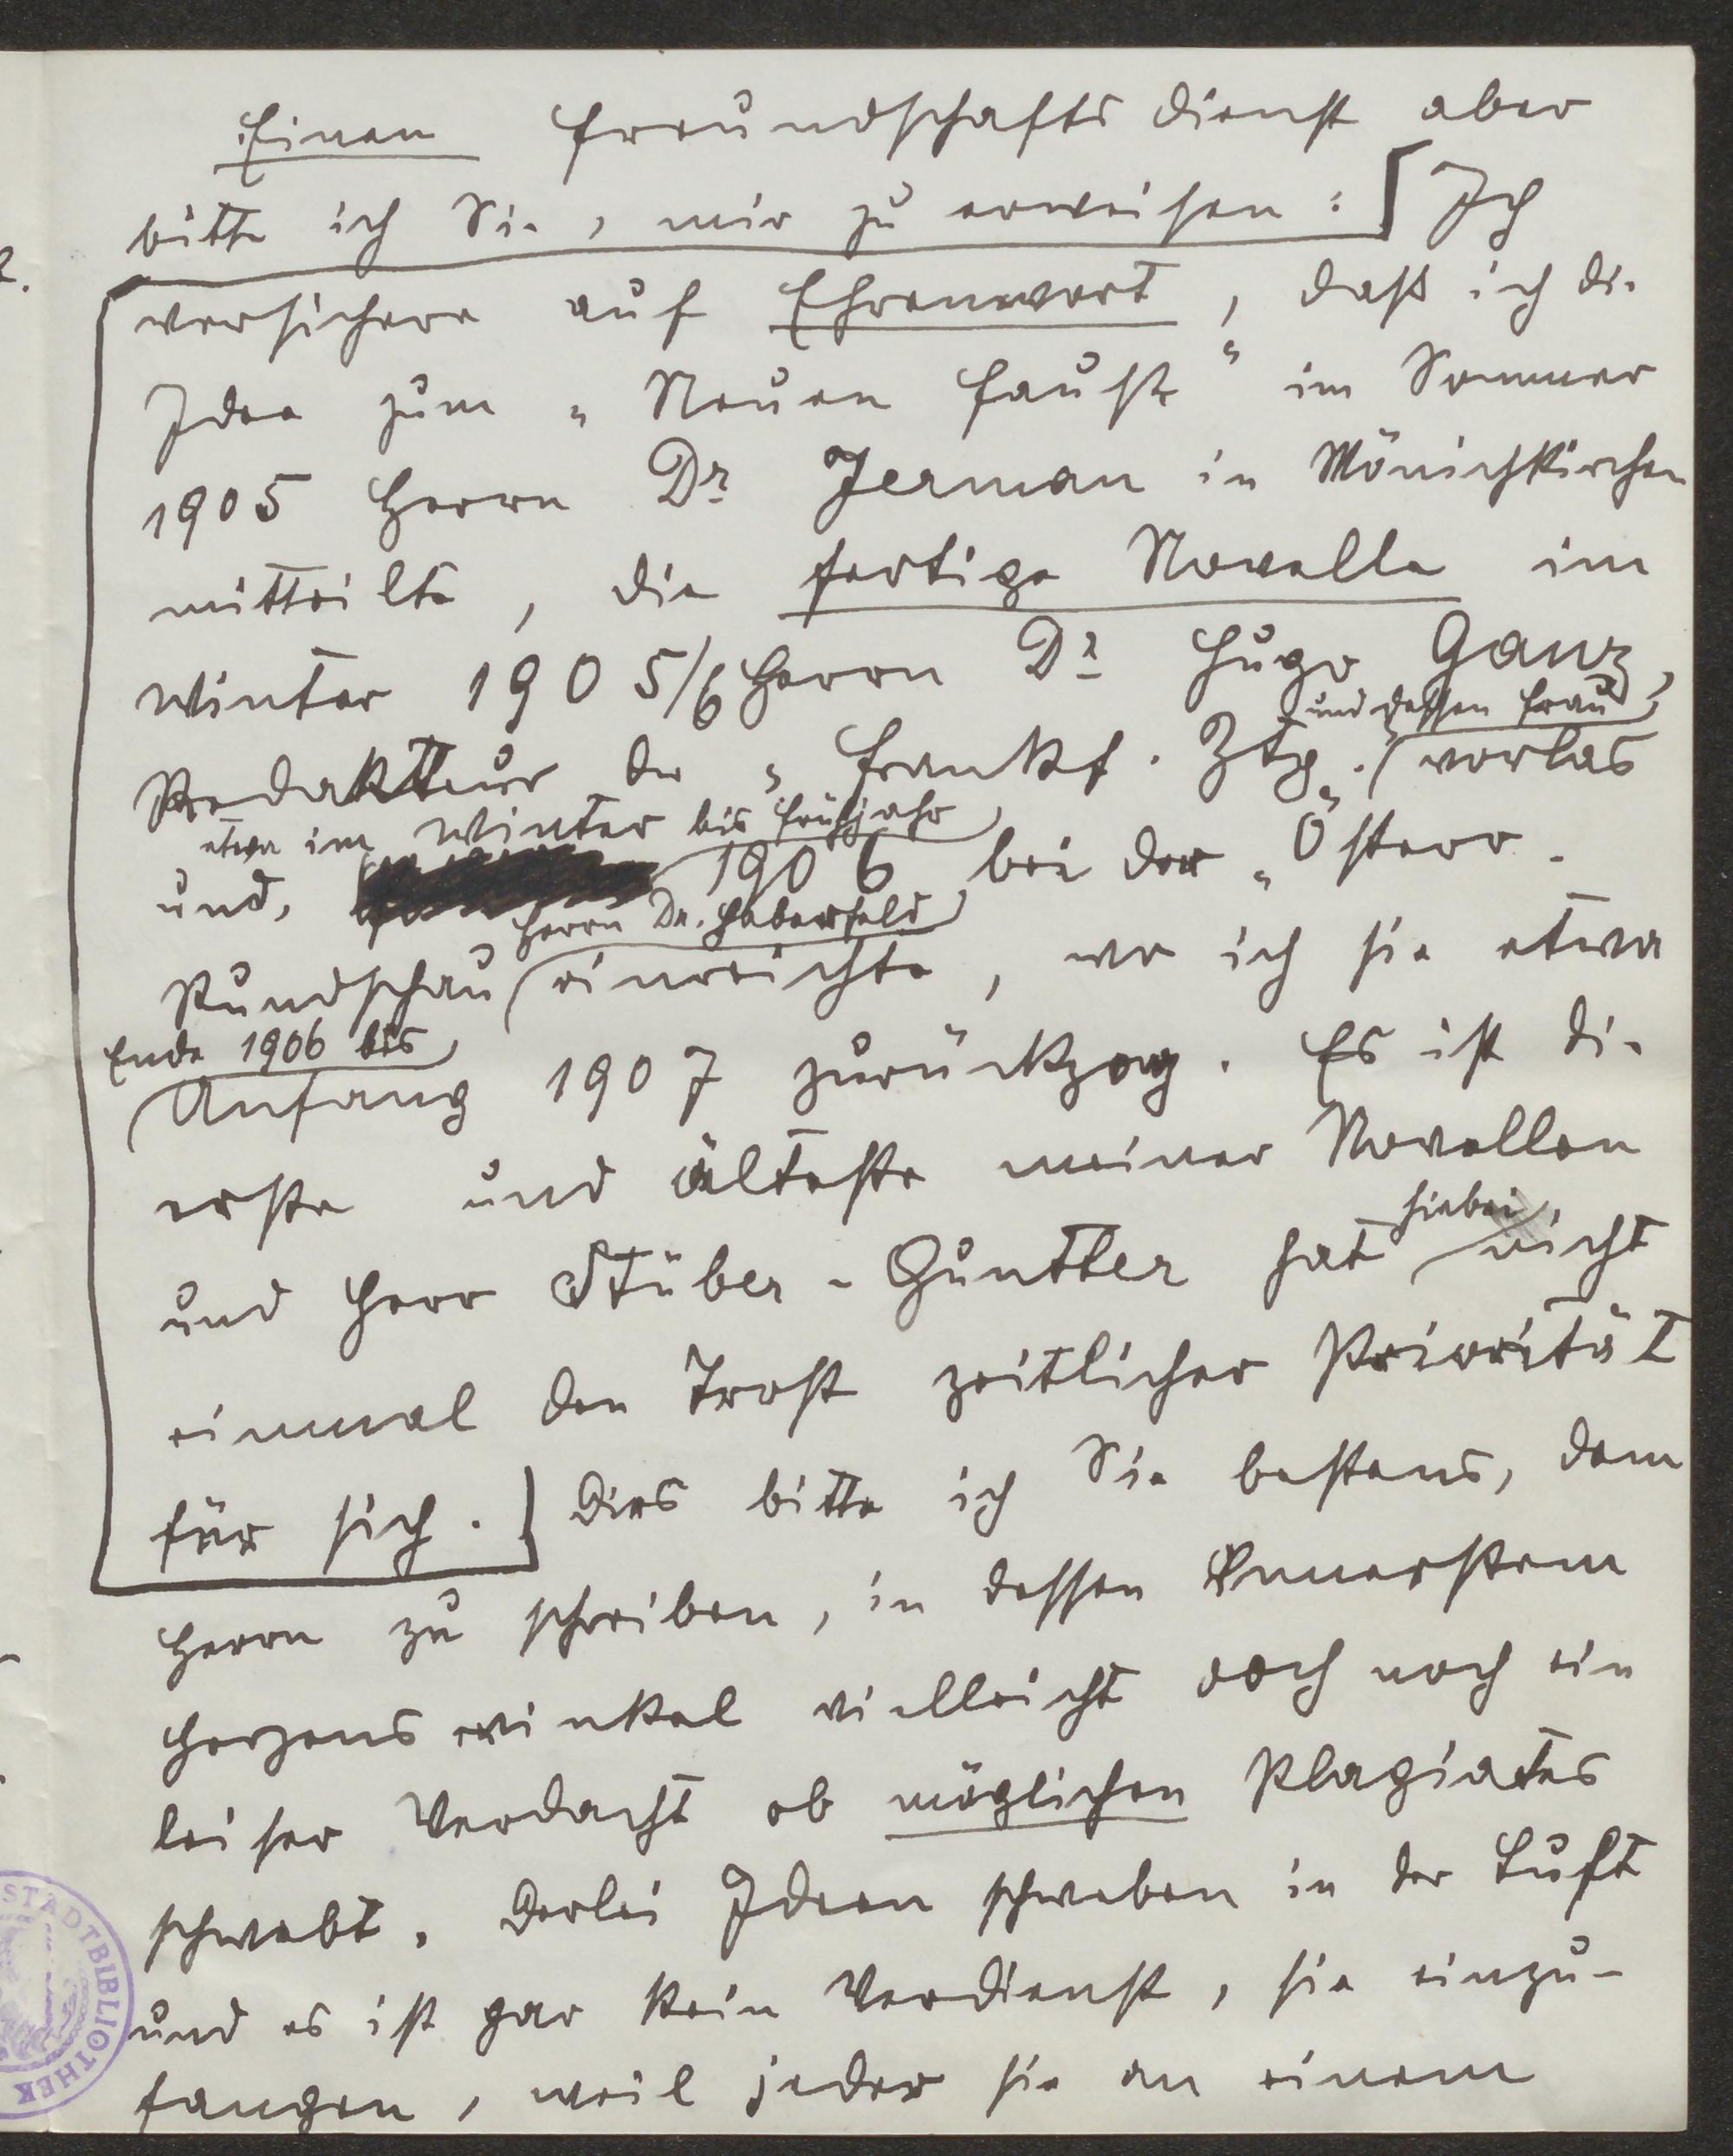 Einen Freundschaftsdienst aber
bitte ich Sie, mir zu erweisen: [Ich
versichere auf Ehrenwort, daß ich die
Idee zum „Neuen Faust“ im Sommer
1905 Herrn Dr Jerman in Mönichkirchen
mitteilte, die fertige Novelle im
Winter 1905/6 Herrn Dr Hugo Ganz,
und dessen Frau
Redakteur der „Frankf. Ztg.“ vorlas
etwa im Winter bis Frühjahr
und, 1906 bei der „Österr.
Herrn Dr. Haberfeld
Rundschau einreichte, wo ich sie etwa
Ende 1906 bis
Anfang 1907 zurückzog. Es ist die
erste und älteste meiner Novellen
hiebei
und Herr Stüber-Gunther hat nicht
einmal den Trost zeitlicher Priorität
für sich.] Dies bitte ich Sie bestens, dem
Herrn zu schreiben, in dessen innerstem
Herzenswinkel vielleicht doch noch ein
leiser Verdacht ob möglichen Plagiates
schwebt. Derlei Ideen schweben in der Luft
und es ist gar kein Verdienst, sie einzu-
fangen, weil jeder sie an einem
STADTBIBLIOTHEK